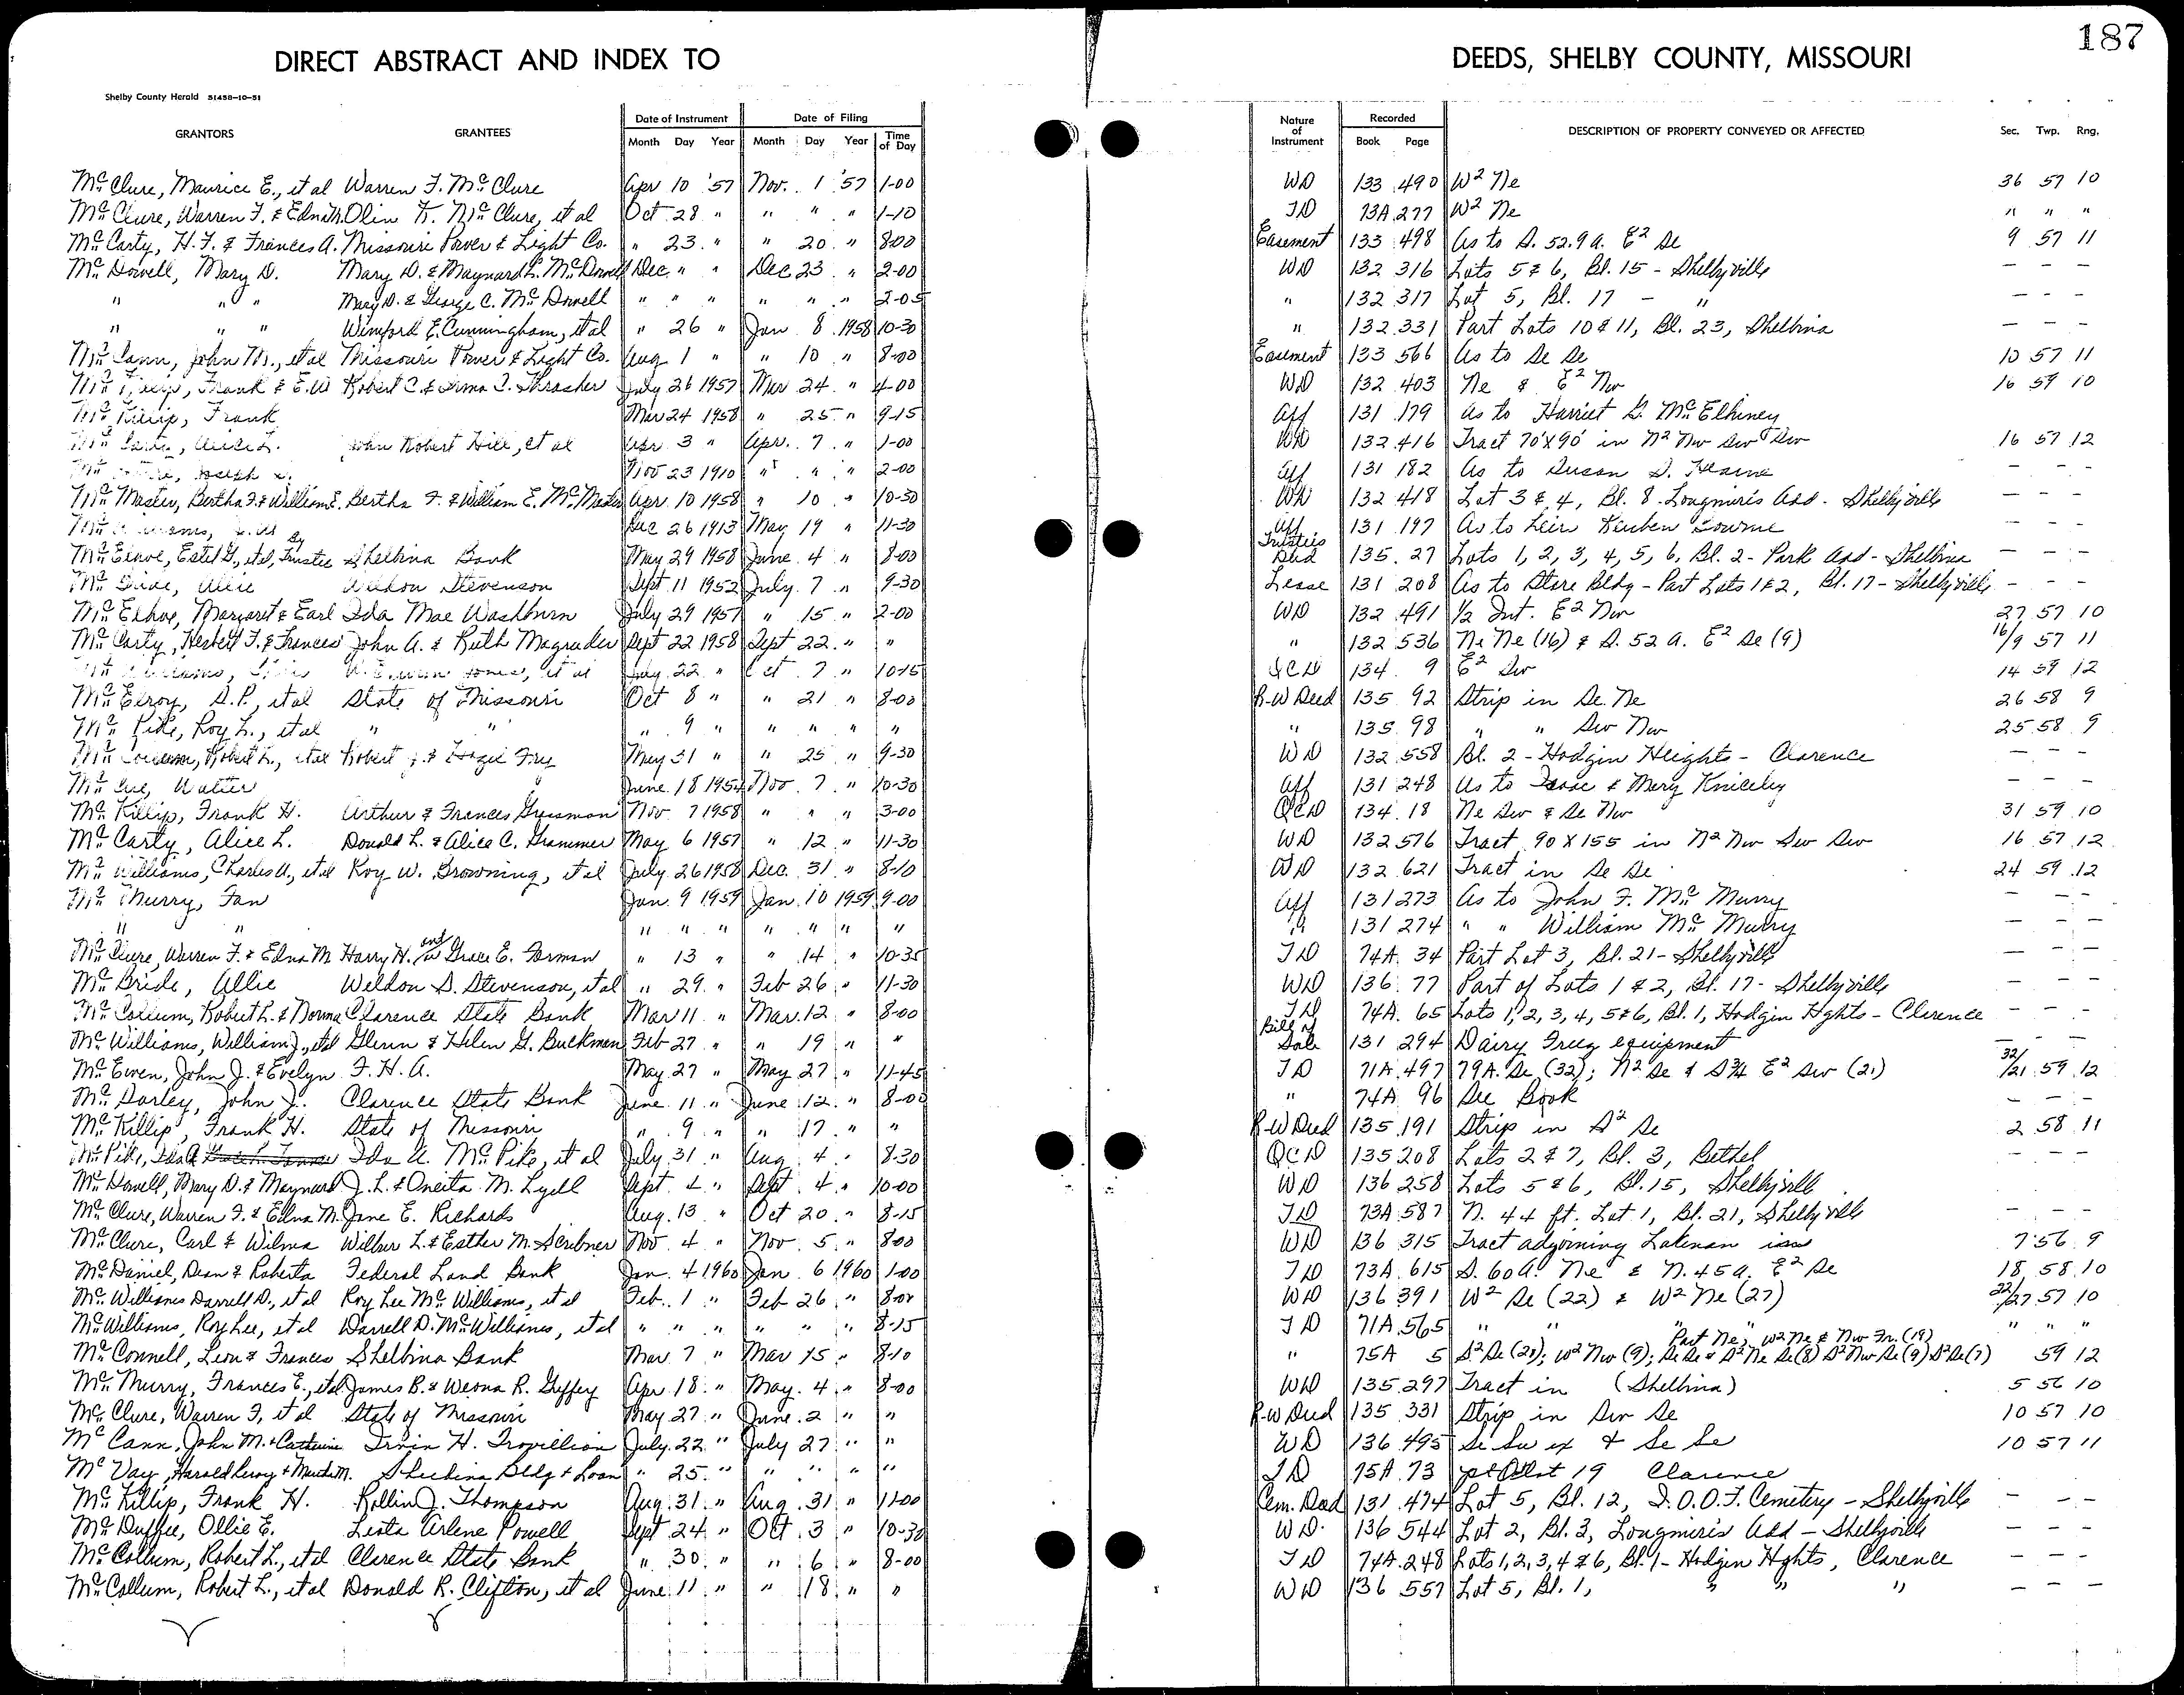 187
DIRECT ABSTRACT AND INDEX TO DEEDS, SHELBY COUNTY, MISSOURI
Shelby County Herald 51458-10-51
GRANTORS GRANTEES Date of Instrument Month Day Year Date of Filing Month Day Year Time of Day Nature of Instrument Recorded Book Page DESCRIPTION OF PROPERTY CONVEYED OR AFFECTED Sec. Twp. Rng.
McClure, Maurice E., et al Warren F. McClure Apr 10 '57 Nov. 1 '57 1-00 WD 133 490 W² Ne 36 57 10
McClure, Warren F. & Edna M. Olin K. McClure, et al Oct 28 " " " " 1-10 TD 73A 277 W² Ne " " "
McCarty, H.F. & Frances A. Missouri Power & Light Co. " 23 " " 20 " 8-00 Easement 133 498 As to S. 52.9 a. E² Se 9 57 11
McDowell, Mary D. Mary D. & Maynard L. McDowell Dec " " Dec 23 " 2-00 WD 132 316 Lots 5 & 6, Bl. 15 - Shelbyville - - -
" " " Mary D. & George C. McDowell " " " " " " 2-05 " 132 317 Lot 5, Bl. 17 - " - - -
" " " Winiford E. Cunningham, et al " 26 " Jan 8 1958 10-30 " 132 331 Part Lots 10 & 11, Bl. 23, Shelbina - - -
McCann, John M., et al Missouri Power & Light Co. Aug 1 " " 10 " 8-00 Easement 133 566 As to Se Se 10 57 11
McKillip, Frank & E.W. Robert C. & Irma I. Thrasher July 26 1957 Mar 24 " 4-00 WD 132 403 Ne & E² Nw 16 59 10
McKillip, Frank Mar 24 1958 " 25 " 9-15 Aff 131 179 As to Harriet G. McElhiney
McCarty, Alice L. John Robert Hill, et al Apr 3 " Apr. 7 " 1-00 WD 132 416 Tract 70'X90' in N² Nw Sw Sw 16 57 12
Joseph Nov 23 1910 " " " 2-00 Aff 131 182 As to Susan S. - - -
McMaster, Bertha F. & William E. Bertha F. & William E. McMaster Apr 10 1958 " 10 " 10-30 WD 132 418 Lot 3 & 4, Bl. 8 Longmire's Add - Shelbyville - - -
Dec 26 1913 May 19 " 11-30 Aff 131 197 As to heirs Reuben - - -
Estel G., et al, Trustee Shelbina Bank May 29 1958 June 4 " 8-00 Trustees Deed 135 27 Lots 1, 2, 3, 4, 5, 6, Bl. 2 - Park Add - Shelbina - - -
McBride, Allie Weldon Stevenson Sept 11 1952 July 7 " 9-30 Lease 131 208 As to Store Bldg - Part Lots 1 & 2, Bl. 17 - Shelbyville - - -
Margaret & Earl Ida Mae Washburn July 29 1957 " 15 " 2-00 WD 132 491 1/2 Int. E² Nw 27 57 10
McCarty, Herbert F. & Frances John A. & Ruth Magruder Sept 22 1958 Sept 22 " " " 132 536 Ne Ne (16) & S. 52 a. E² Se (9) 16/9 57 11
McWilliams, et al July 22 " Oct 7 " 10-15 QCD 134 9 E² Sw 14 59 12
McElroy, S.P., et al State of Missouri Oct 8 " " 21 " 8-00 R-W Deed 135 92 Strip in Se Ne 26 58 9
McPike, Roy L., et al " " " 9 " " " " " " 135 98 " " Sw Nw 25 58 9
McCollum, Robert L., et al Robert J. & Hazel Fry May 31 " " 25 " 9-30 WD 132 558 Bl. 2 - Hodgin Heights - Clarence - - -
McCue, Walter June 18 1954 Nov. 7 " 10-30 Aff 131 248 As to Isaac & Mary Kniceley - - -
McKillip, Frank H. Arthur & Frances Gressman Nov. 7 1958 " " " 3-00 QCD 134 18 Ne Sw & Se Nw 31 59 10
McCarty, Alice L. Donald L. & Alice C. Grammer May 6 1957 " 12 " 11-30 WD 132 576 Tract 90 X 155 in N² Nw Sw Sw 16 57 12
McWilliams, Charles A., et al Roy W. Browning, et al July 26 1958 Dec. 31 " 8-10 WD 132 621 Tract in Se Se 24 59 12
McMurry, Fan Jan. 9 1959 Jan. 10 1959 9-00 Aff 131 273 As to John F. McMurry - - -
" " " " " " " " " " 131 274 " " William McMurry - - -
McClure, Warren F. & Edna M. Harry H. and Grace E. Forman " 13 " " 14 " 10-35 TD 74A 34 Part Lot 3, Bl. 21 - Shelbyville - - -
McBride, Allie Weldon S. Stevenson, et al " 29 " Feb 26 " 11-30 WD 136 77 Part of Lots 1 & 2, Bl. 17 - Shelbyville - - -
McCollum, Robert L. & Norma Clarence State Bank Mar 11 " Mar. 12 " 8-00 TD 74A 65 Lots 1, 2, 3, 4, 5 & 6, Bl. 1, Hodgin Hghts - Clarence - - -
McWilliams, William J., et al Glenn & Helen G. Buckman Feb 27 " " 19 " " Bill of Sale 131 294 Dairy equipment - - -
McEwen, John J. & Evelyn F.H.A. May 27 " May 27 " 11-45 TD 71A 497 79A. Se (32); N² Se & S¾ E² Sw (21) 32/21 59 12
McDarley, John J. Clarence State Bank June 11 " June 12 " 8-00 " 74A 96 See Book - - -
McKillip, Frank H. State of Missouri " 9 " " 17 " " R-W Deed 135 191 Strip in S² Se 2 58 11
McPike, Ida A. Ida A. McPike, et al July 31 " Aug 4 " 8-30 QCD 135 208 Lots 2 & 7, Bl. 3, Bethel - - -
McDowell, Mary D. & Maynard J.L. & Oneita M. Lyell Sept 2 " Sept. 4 " 10-00 WD 136 258 Lots 5 & 6, Bl. 15, Shelbyville - - -
McClure, Warren F. & Edna M. Jane E. Richards Aug. 13 " Oct 20 " 8-15 TD 73A 587 N. 44 ft. Lot 1, Bl. 21, Shelbyville - - -
McClure, Carl & Wilma Wilbur L. & Esther M. Scribner Nov. 4 " Nov. 5 " 8-00 WD 136 315 Tract adjoining Lakenan 7 56 9
McDaniel, Dean & Roberta Federal Land Bank Jan. 4 1960 Jan. 6 1960 1-00 TD 73A 615 S. 60 a. Ne & N. 45 a. E² Se 18 58 10
McWilliams Darrell D., et al Roy Lee McWilliams, et al Feb. 1 " Feb 26 " 8-00 WD 136 391 W² Se (22) & W² Ne (27) 22/27 57 10
McWilliams, Roy Lee, et al Darrell D. McWilliams, et al " " " " " " 8-15 TD 71A 565 " " " " "
Part Ne; W² Ne & Nw Fr. (19)
McConnell, Leon & Frances Shelbina Bank Mar 7 " Mar 15 " 8-10 " 75A 5 S² Se (20); W² Nw (9); Se Se & S² Ne Se (8) S² Nw Se (9) S² Se (7) 59 12
McMurry, Frances E., et al James B. & Weona R. Guffey Apr 18 " May 4 " 8-00 WD 135 297 Tract in (Shelbina) 5 56 10
McClure, Warren F., et al State of Missouri May 27 " June 2 " " R-W Deed 135 331 Strip in Sw Se 10 57 10
McCann, John M. & Catherine Irvin H. Trovillion July 22 " July 27 " " WD 136 495 Se Sw ex & Se Se 10 57 11
McVay, Harold Leroy & M. Shelbina Bldg & Loan " 25 " " " " " TD 75A 73 pt Outlot 19 Clarence
McKillip, Frank H. Rollin J. Thompson Aug. 31 " Aug. 31 " 11-00 Cem. Deed 131 474 Lot 5, Bl. 12, I.O.O.F. Cemetery - Shelbyville - - -
McDuffee, Ollie E. Leota Arlene Powell Sept 24 " Oct. 3 " 10-30 WD 136 544 Lot 2, Bl. 3, Longmire's Add - Shelbyville - - -
McCollum, Robert L., et al Clarence State Bank " 30 " " 6 " 8-00 TD 74A 248 Lots 1, 2, 3, 4 & 6, Bl. 1 - Hodgin Hghts, Clarence - - -
McCollum, Robert L., et al Donald R. Clifton, et al June 11 " " 18 " " WD 136 557 Lot 5, Bl. 1, " " " - - -